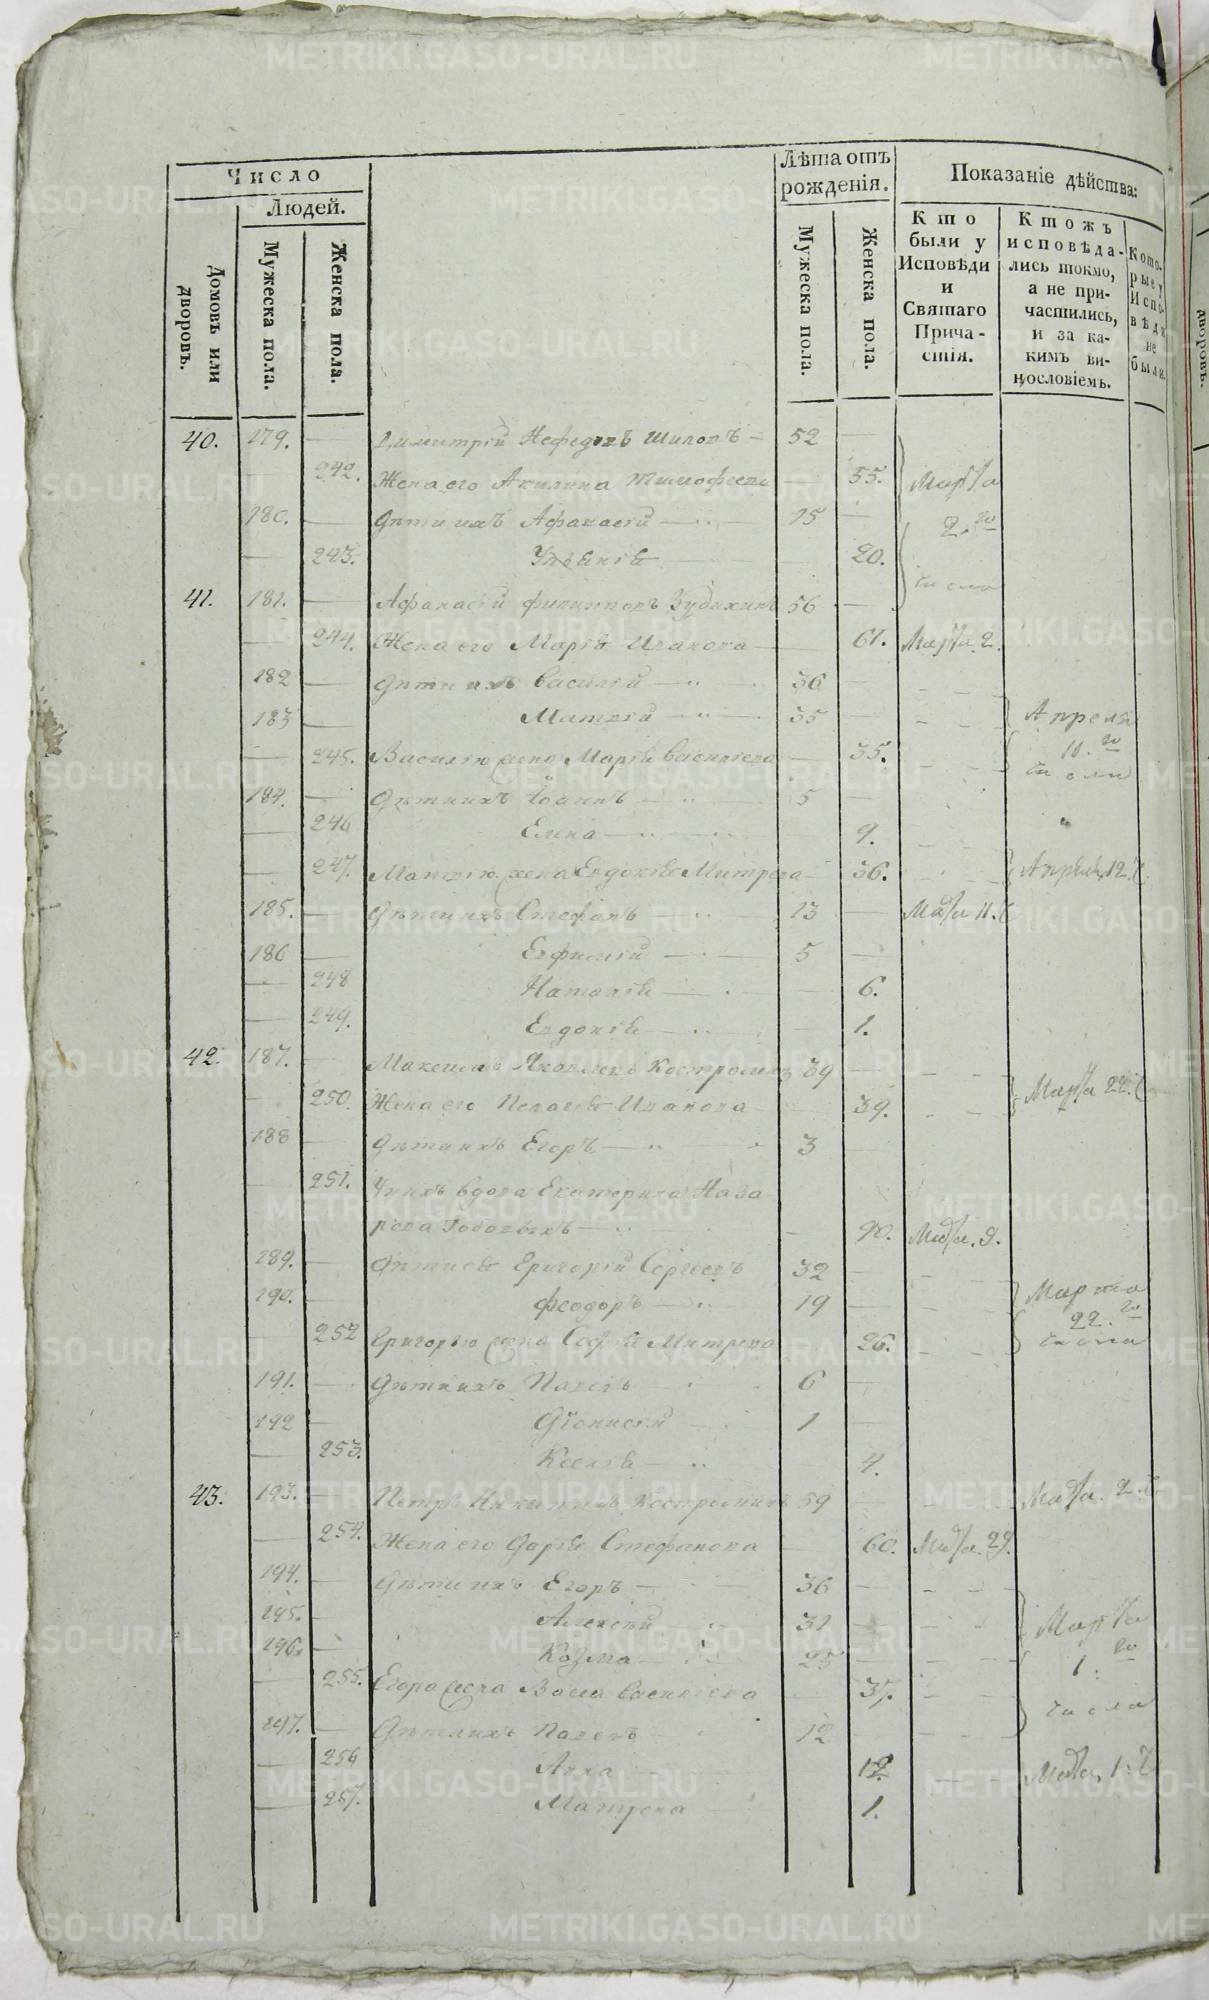 Число
Людей.
Домовъ или дворовъ.
Мужеска пола.
Женска пола.
Лѣта отъ рожденія.
Мужеска пола.
Женска пола.
Показаніе дѣйства:
Кто были у Исповѣди и Святаго Причастія.
Ктожъ исповѣдались токмо, а не причастились, и за какимъ винословіемъ.
Которые у Исповѣди не были.
40. 179. — Димитрій Нефедовъ Шиловъ — 52 —
— 242. Жена его Акилина Тимофеева — 55. Марта
180. — Дѣти ихъ Афанасій — 15 — 2.го
— 243. — 20. числа
41. 181. — Афанасій Филиповъ Зудихинъ 56 —
— 244. Жена его Марія Иванова — 61. Марта. 2.
182 — Дѣти ихъ Василій — 36 —
183 — Матвій — 35 — Апреля
— 245. Василію жена Марія Василіева — 35. 11.го числа
184. — Дѣти ихъ Іоаннъ — 5 —
— 246 Елена — 9.
— 247. Матвію жена Евдокія Митрева — 36. Апреля, 12.
185. — Дѣти ихъ Стефанъ — 13 — Марта 11.
186 — Евфимій — 5 —
— 248 Наталія — 6.
— 249. Евдокія — 1.
42. 187. — Максимъ Яковлевъ Костромин 39 —
— 250. Жена его Пелагія Иванова — 39. Марта 22.
188 — Дѣти ихъ Егоръ — 3 —
— 251. У нихъ вдова Екатерина Наза
рова — 90. Марта. 9.
189. — Дѣти ея Григорій Сергеевъ 32 —
190. — Феодоръ — 19 — Марта
— 252 Григорью жена Софія Митрева — 26. 22.го числа
191. — Дѣти ихъ Павелъ — 6 —
192 — Діонисій — 1 —
— 253. Ксенія — 4.
43. 193. — Петръ Никитинъ Костроминъ 59 — Марта. 2.
— 254. Жена его Дарія Стефанова — 60. Марта. 29.
194. — Дѣти ихъ Егоръ — 36 —
195. — Алексѣй — 31 — Марта
196. — Козма — 25 — 1.го
— 255. Егора жена Васса Василіева — 37. числа
197. — Дѣти ихъ Павелъ — 12 —
— 256 Анна — Марта, 1.
— 257. Матрена — 1.
METRIKI.GASO-URAL.RU